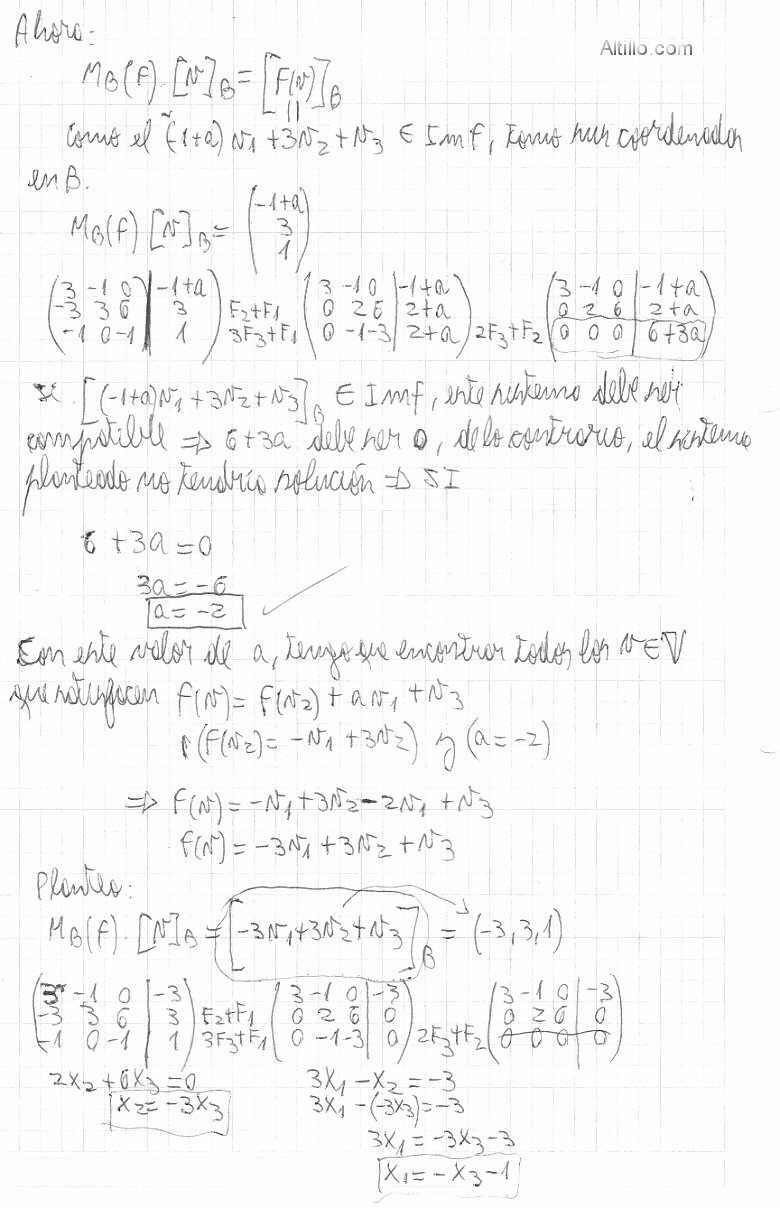 Ahora:
Altillo.com
M_B(f) · [v]_B = [f(v)]_B
Como el (-1+a)v₁ + 3v₂ + v₃ ∈ Im f, tomo sus coordenadas
en B.
M_B(f) [v]_B = (-1+a 3 1)
(3 -1 0 | -1+a) (3 -1 0 | -1+a) (3 -1 0 | -1+a)
(-3 3 6 | 3) F₂+F₁ (0 2 6 | 2+a) (0 2 6 | 2+a)
(-1 0 -1 | 1) 3F₃+F₁ (0 -1 -3 | 2+a) 2F₃+F₂ (0 0 0 | 6+3a)
Si [(-1+a)v₁ + 3v₂ + v₃]_B ∈ Im f, este sistema debe ser
compatible ⇒ 6+3a debe ser 0, de lo contrario, el sistema
planteado no tendría solución ⇒ SI
6 + 3a = 0
3a = -6
a = -2
Con este valor de a, tengo que encontrar todos los v ∈ V
que satisfacen f(v) = f(v₂) + av₁ + v₃
(f(v₂) = -v₁ + 3v₂) y (a = -2)
⇒ f(v) = -v₁ + 3v₂ - 2v₁ + v₃
f(v) = -3v₁ + 3v₂ + v₃
Planteo:
M_B(f) · [v]_B = [-3v₁ + 3v₂ + v₃]_B = (-3, 3, 1)
(3 -1 0 | -3) (3 -1 0 | -3) (3 -1 0 | -3)
(-3 3 6 | 3) F₂+F₁ (0 2 6 | 0) (0 2 6 | 0)
(-1 0 -1 | 1) 3F₃+F₁ (0 -1 -3 | 0) 2F₃+F₂ (0 0 0 | 0)
2x₂ + 6x₃ = 0 3x₁ - x₂ = -3
x₂ = -3x₃ 3x₁ - (-3x₃) = -3
3x₁ = -3x₃ - 3
x₁ = -x₃ - 1